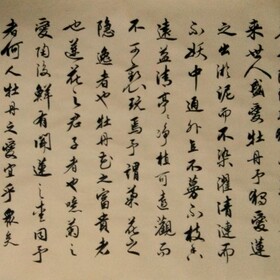 來世人盛愛牡丹予獨愛蓮
之出淤泥而不染濯清漣而
不妖中通外直不蔓不枝香
遠益清亭亭淨植可遠觀而
不可褻玩焉予謂菊花之
隱逸者也牡丹花之富貴者
也蓮花之君子者也噫菊之
愛陶後鮮有聞蓮之愛同予
者何人牡丹之愛宜乎眾矣